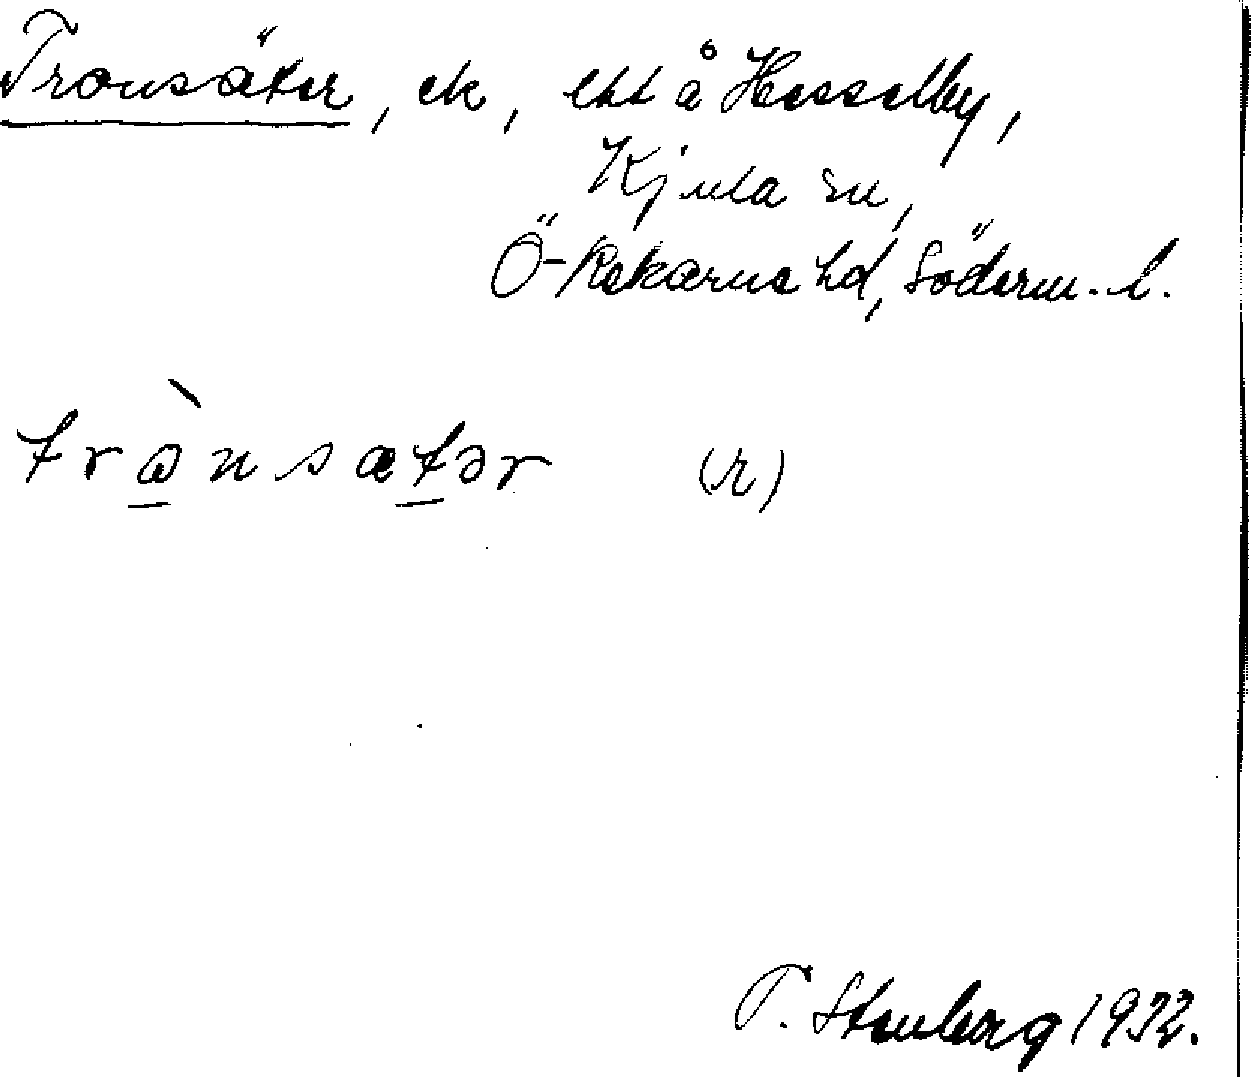 Tronsäter, ek, ett å Hesselby,
Kjula sn,
Ö-Rekarne hd, Söderm. l.
trὼnsætər (r)
T. Stenberg 1932.